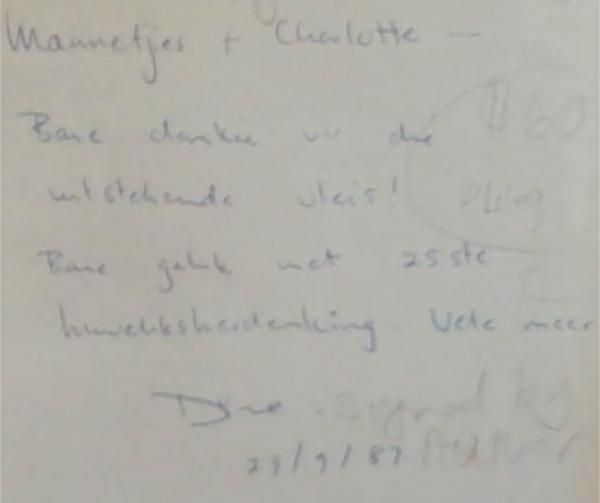 Mannetjes + Charlotte —
$60
Baie dankie vir die
uitstekende vleis!
Baie geluk met 25ste
huweliksherdenking. Vele meer
Dave
signed by
Author
29/9/87